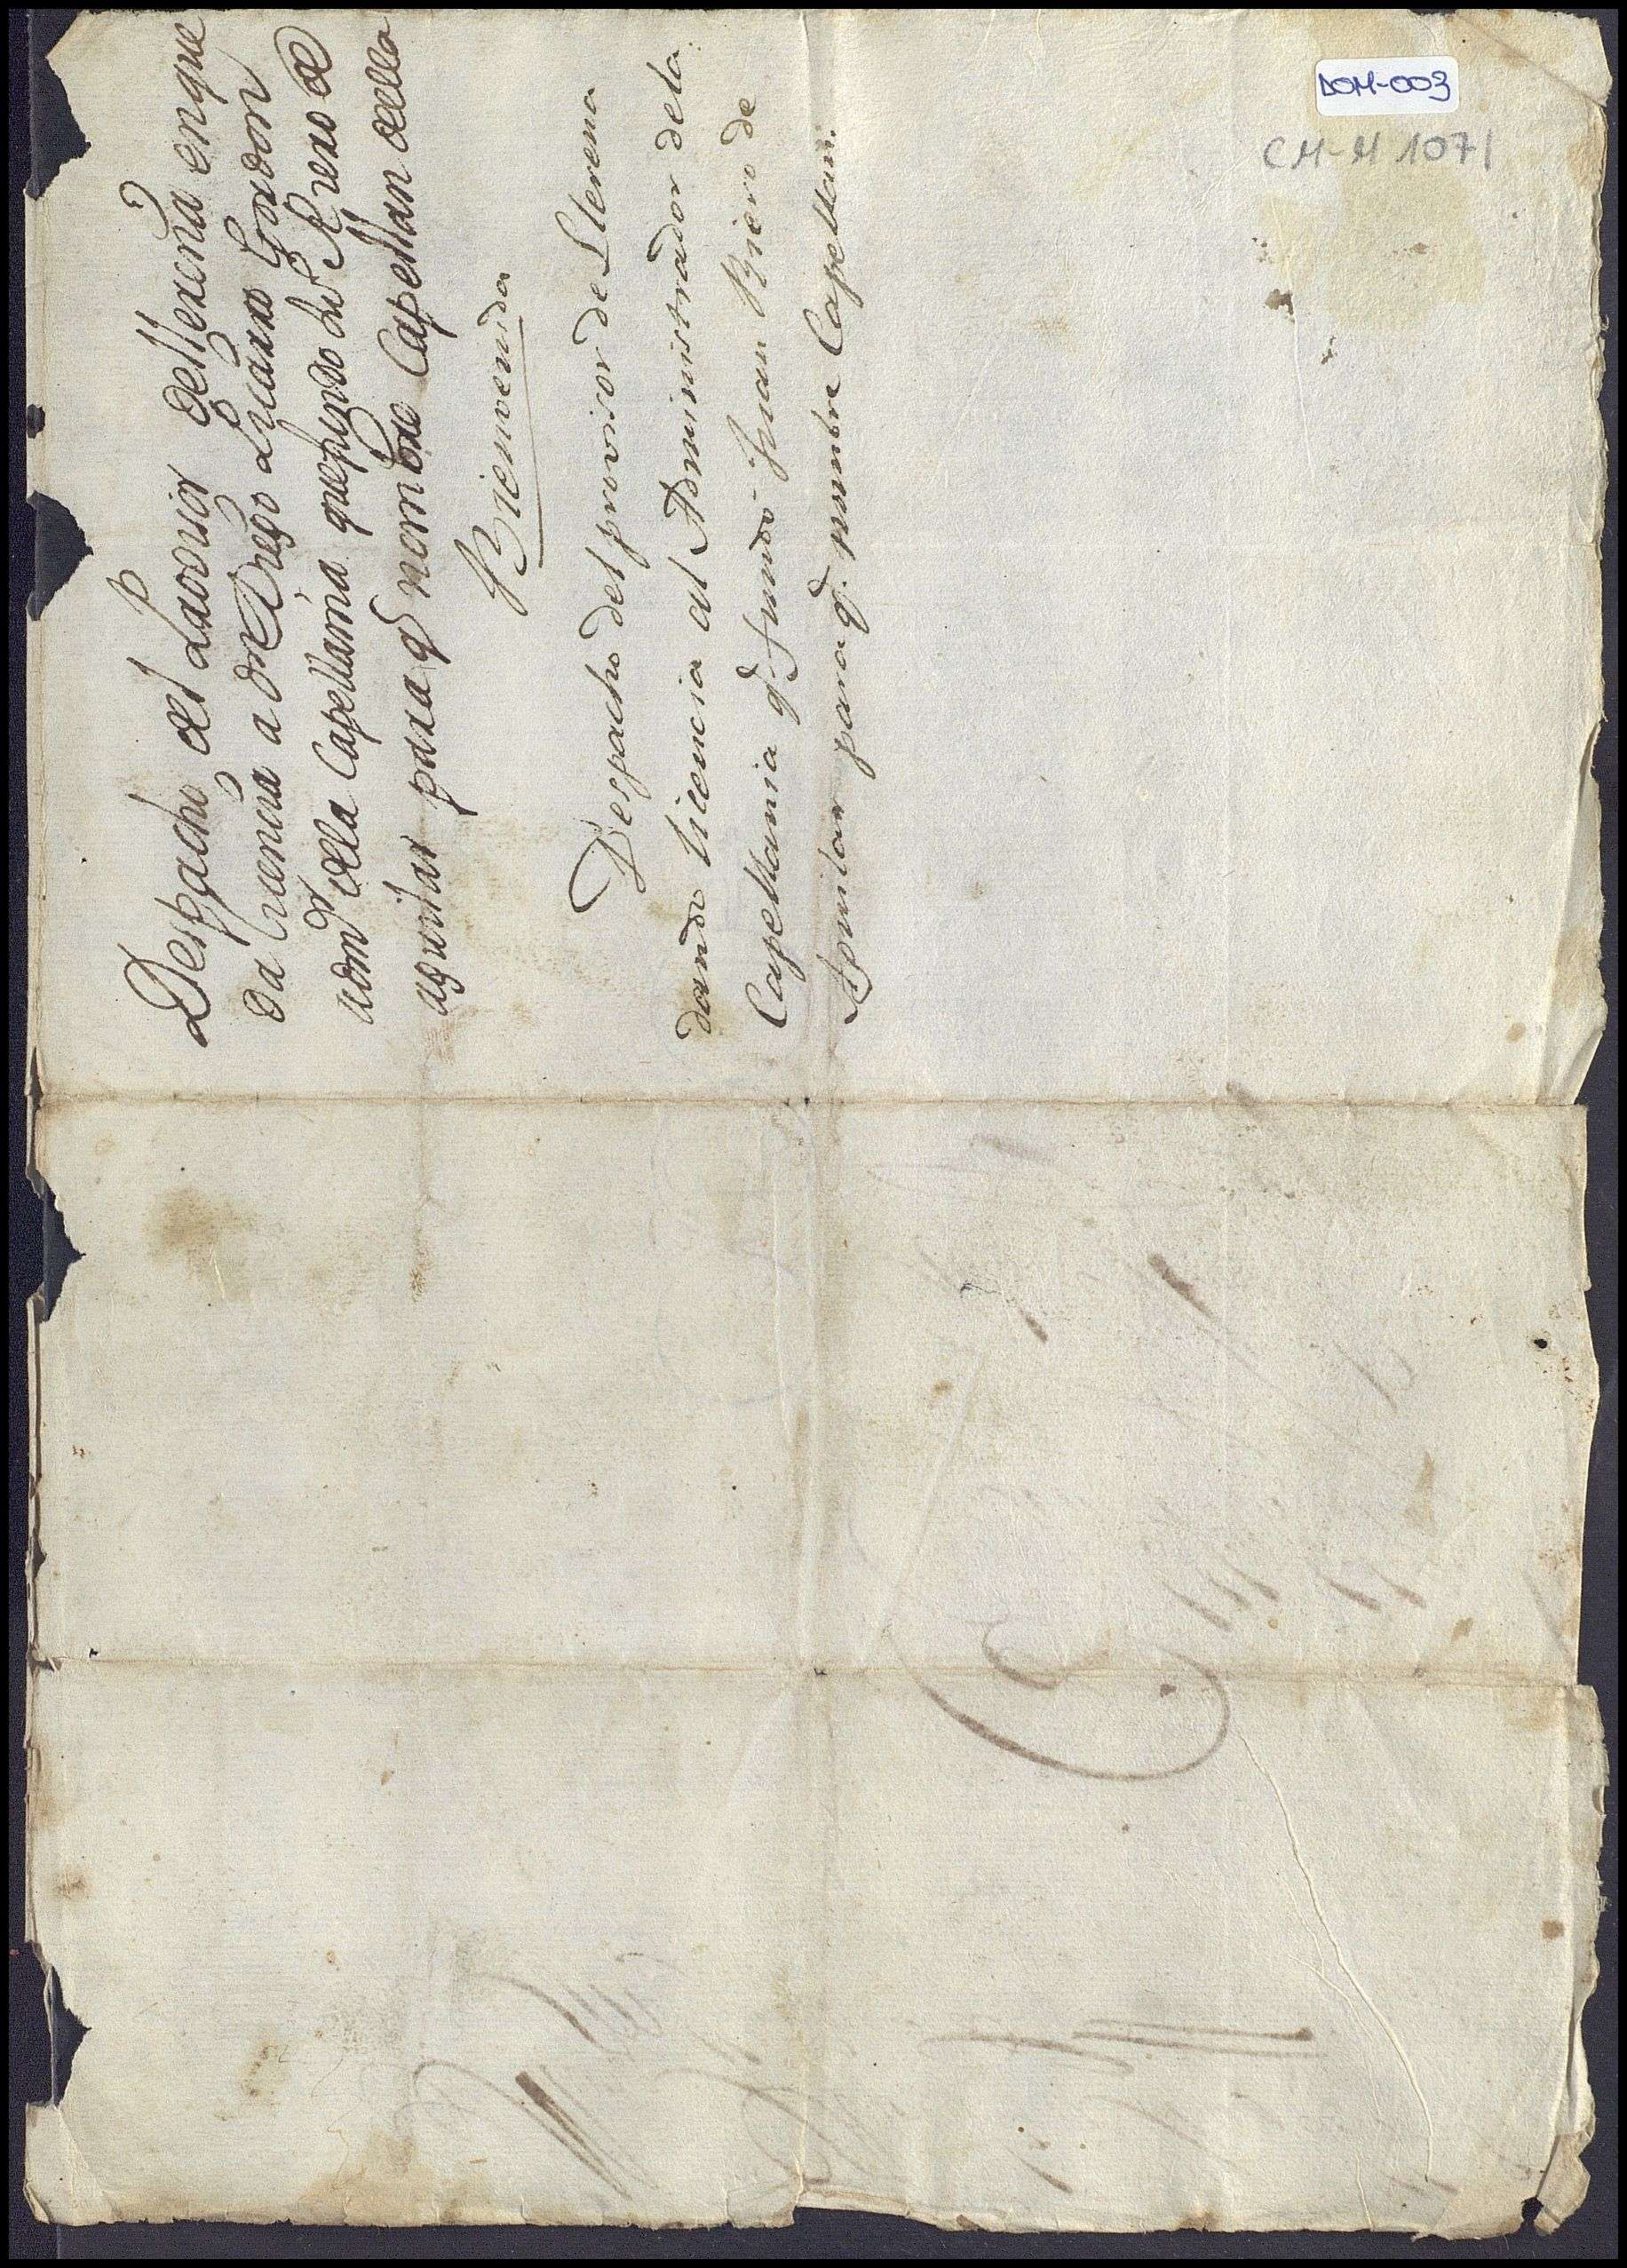 Despacho del Provisor de Llerena en que
da licencia a Dn Diego Lucaxxo Gordon
admor. dela Capellania que fundo Ju Riero de
aguilar para q nombre Capellan della
Bienvenida
Despacho del provisor de Llerena
dando licencia al Administrador dela
Capellania q. fundó Juan Riero de
Aguilar para q. nombre Capellan.
DOM-003
CM-M 1071